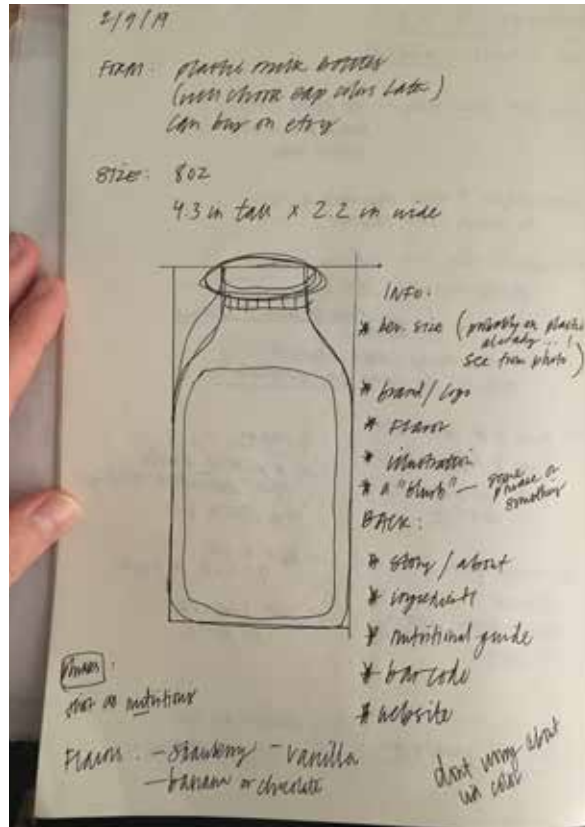 2/9/19
FORM: plastic milk bottles
(will choose cap color later)
can buy on etsy
SIZE: 8oz
4.3 in tall x 2.2 in wide
INFO:
* bev. size (probably on plastic
already...!
see from photo!)
* brand/logo
* Flavor
* illustration
* a "blurb" — some
phrase or
something
BACK:
* story / about
* ingredients
* nutritional guide
* barcode
* website
Phrases:
as nutritious
Flavors: - strawberry - vanilla
- banana or chocolate
dont worry about
color